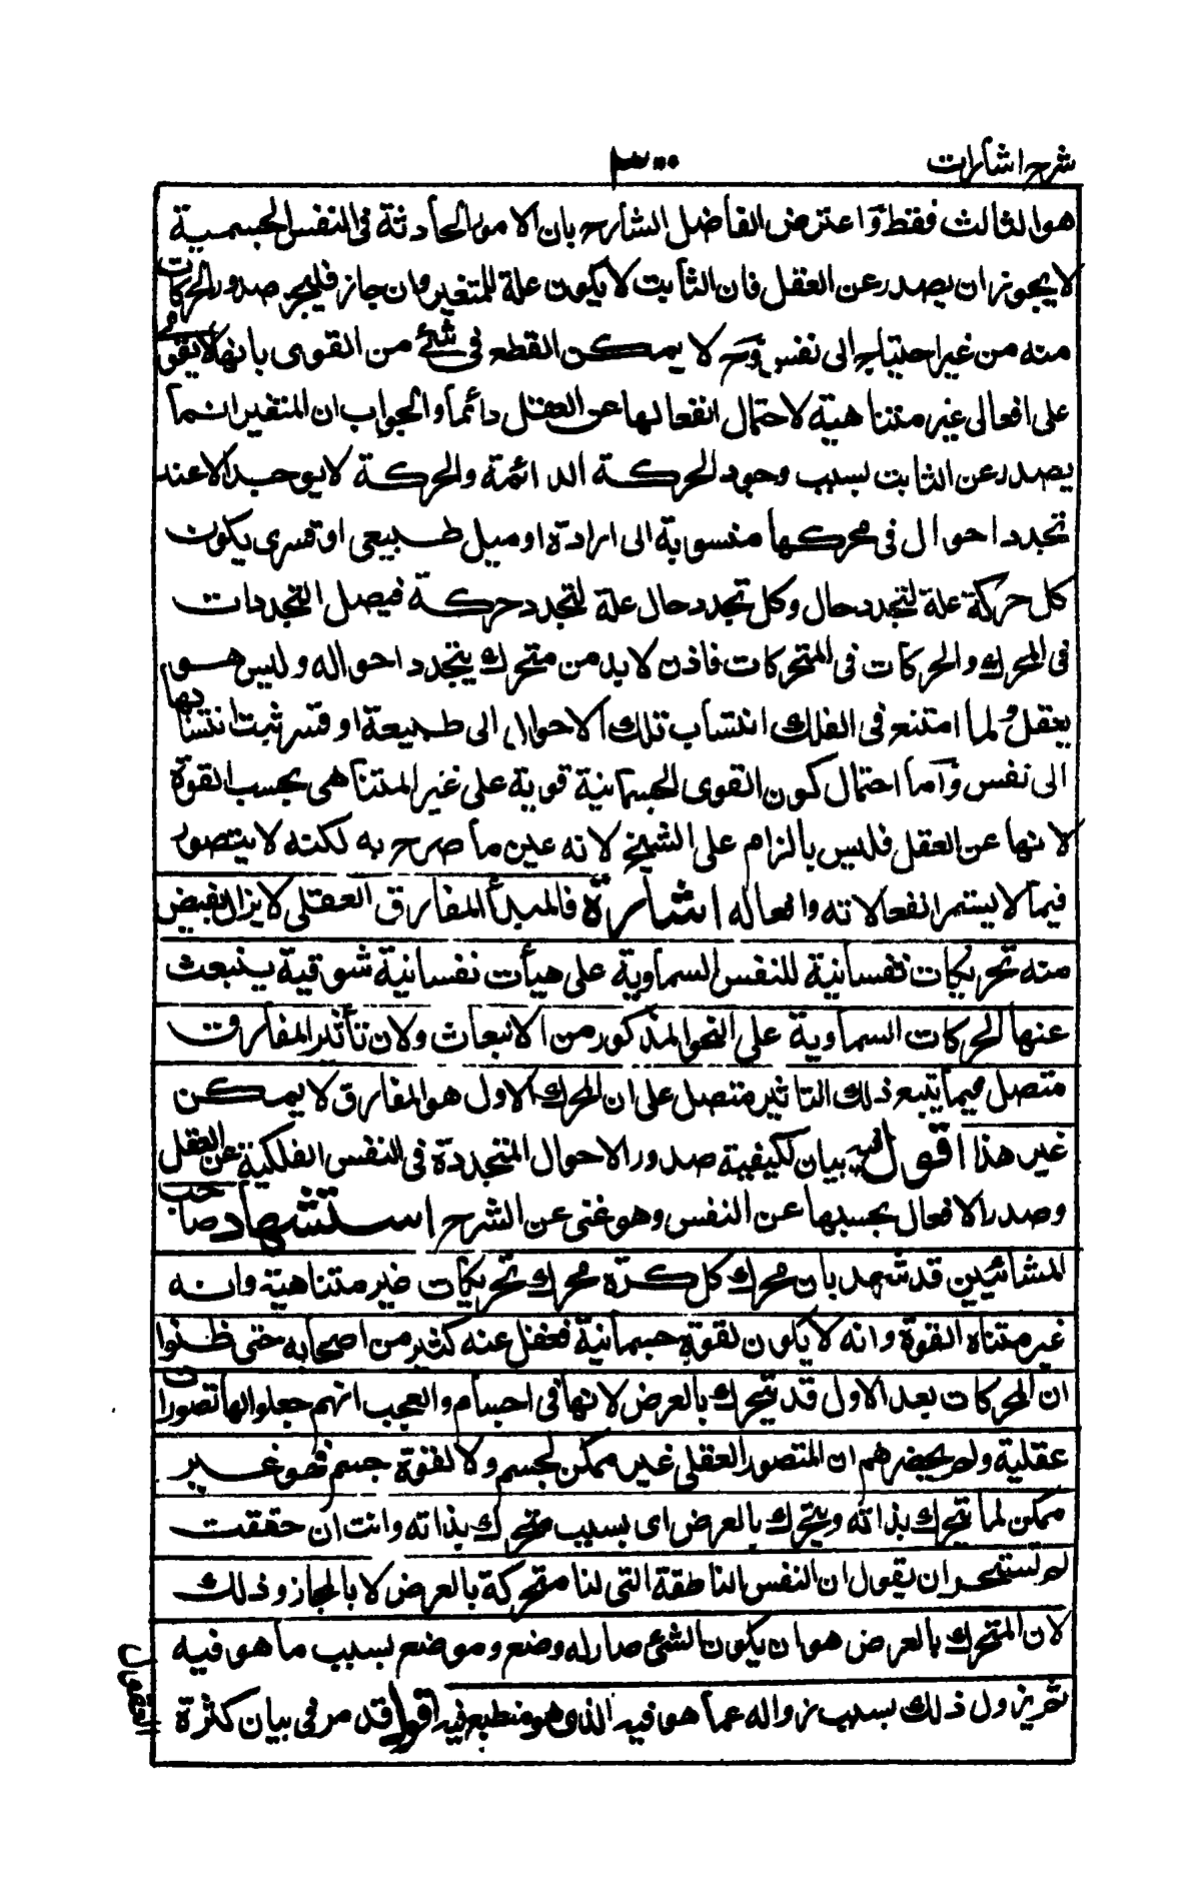 شرح اشارات
٣٠٠
هو الثالث فقط وَاعترض الفاضل الشارح بان الامور الحادثة فى النفس الجسمية
لا يجوز ان يصدر عن العقل فان الثابت لا يكون علة للمتغير وان جاز فليجز صدور الحركات
منه من غير احتياج الى نفس وَح لا يمكن القطع فى شئ من القوى بانها لا يقوى
على افعال غير متناهية لاحتمال انفعالها عن العقل دائما والجواب ان المتغير انما
يصدر عن الثابت بسبب وجود الحركة الدائمة والحركة لا يوجد الا عند
تجدد احوال فى محركها منسوبة الى ارادة او ميل طبيعى او قسرى يكون
كل حركة علة لتجدد حال وكل تجدد حال علة لتجدد حركة فيصل التجددات
فى المحرك والحركات فى المتحركات فاذن لا بد من متحرك يتجدد احواله وليس هو
بعقل ولما امتنع فى الفلك انتساب تلك الاحوال الى طبيعة او قسر ثبت انتسابها
الى نفس وَاما احتمال كون القوى الجسمانية قوية على غير المتناهى بحسب القوة
لانها عن العقل فليس بالزام على الشيخ لانه عين ما صرح به لكنه لا يتصور
فيما لا يستمر انفعالاته وافعاله اشارة فالمبدأ المفارق العقلى لا يزال يفيض
منه تحريكات نفسانية للنفس السماوية على هيأت نفسانية شوقية ينبعث
عنها الحركات السماوية على النحو المذكور من الانبعاث ولان تأثير المفارق
متصل فيما يتبع ذلك التاثير متصل على ان المحرك الاول هو المفارق لا يمكن
غير هذا اقول فيه بيان لكيفية صدور الاحوال المتجددة فى النفس الفلكية عن العقل
وصدر الافعال بحسبها عن النفس وهو غنى عن الشرح استشهاد صاحب
المشائيين قد شهد بان محرك كل كرة محرك تحريكات غير متناهية وانه
غير متناه القوة وانه لا يكون لقوة جسمانية فغفل عنه كثير من اصحابه حتى ظنوا
ان المحركات بعد الاول قد يتحرك بالعرض لانها فى اجسام والعجب انهم جعلوا لها تصورات
عقلية ولم يحضرهم ان المتصور العقلى غير ممكن لجسم ولا لقوة جسم فهو غير
ممكن لما يتحرك بذاته ويتحرك بالعرض اى بسبب متحرك بذاته وانت ان حققت
لم تستجز ان يقول ان النفس الناطقة التى لنا متحركة بالعرض لا بالمجاز وذلك
لان المتحرك بالعرض هو ان يكون الشئ صار له وضع وموضع بسبب ما هو فيه
ثم يزول ذلك بسبب زواله عما هو فيه الذى هو منطبع فيه اقول قد مر فى بيان كثرة
العقول